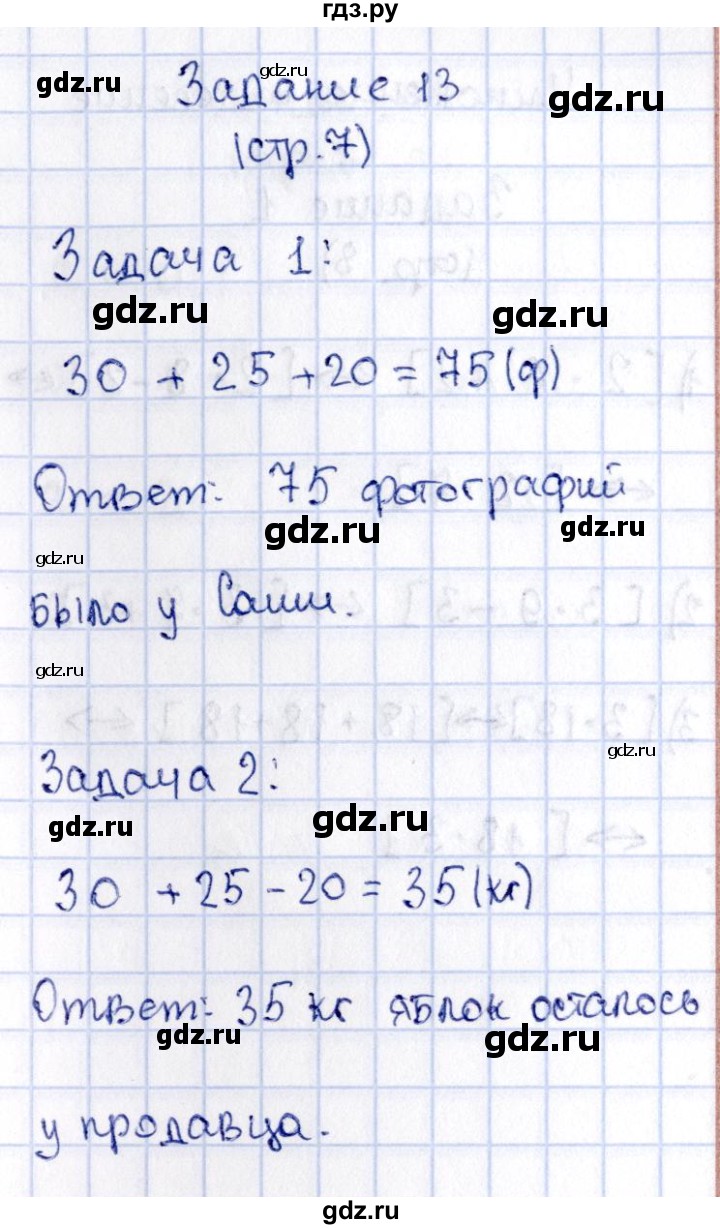 гдз.ру
gdz.ru
gdz.ru
gdz.ru
Задание 13
(стр.7)
Задача 1:
gdz.ru
gdz.ru
30 + 25 + 20 = 75 (ф)
Ответ: 75 фотографий
gdz.ru
gdz.ru
gdz.ru
было у Саши.
gdz.ru
gdz.ru
Задача 2:
gdz.ru
gdz.ru
30 + 25 - 20 = 35 (кг)
Ответ: 35 кг яблок осталось
gdz.ru
gdz.ru
у продавца.
gdz.ru